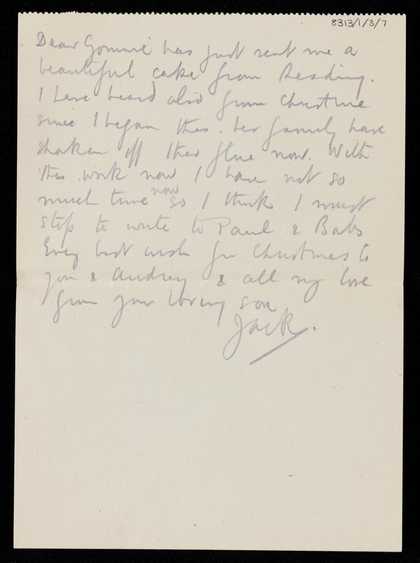 8313/1/3/7
Dear Gommie has just sent me a
beautiful cake from Reading.
I have heard also from Christine
since I began this. her family have
shaken off their flue now. With
this work now I have not so
much time now so I think I must
stop to write to Paul & Babs
Every best wish for Christmas to
you & Audrey & all my love
from your loving son
Jack.